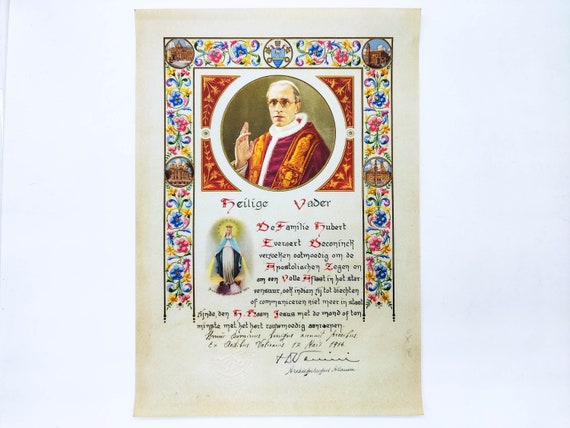 Heilige Vader
De Familie Hubert
Everaert Deconinck
verzoeken ootmoedig om de
Apostolischen Zegen en
om een Volle Aflaat in het ster
vensuur, ook indien zij tot biechten
of communiceren niet meer in staat
zijnde, den H. Naam Jezus met de mond of ten
minste met het hart rouwmoedig aanroepen.
precibus
Ex Aedibus Vaticanis 12